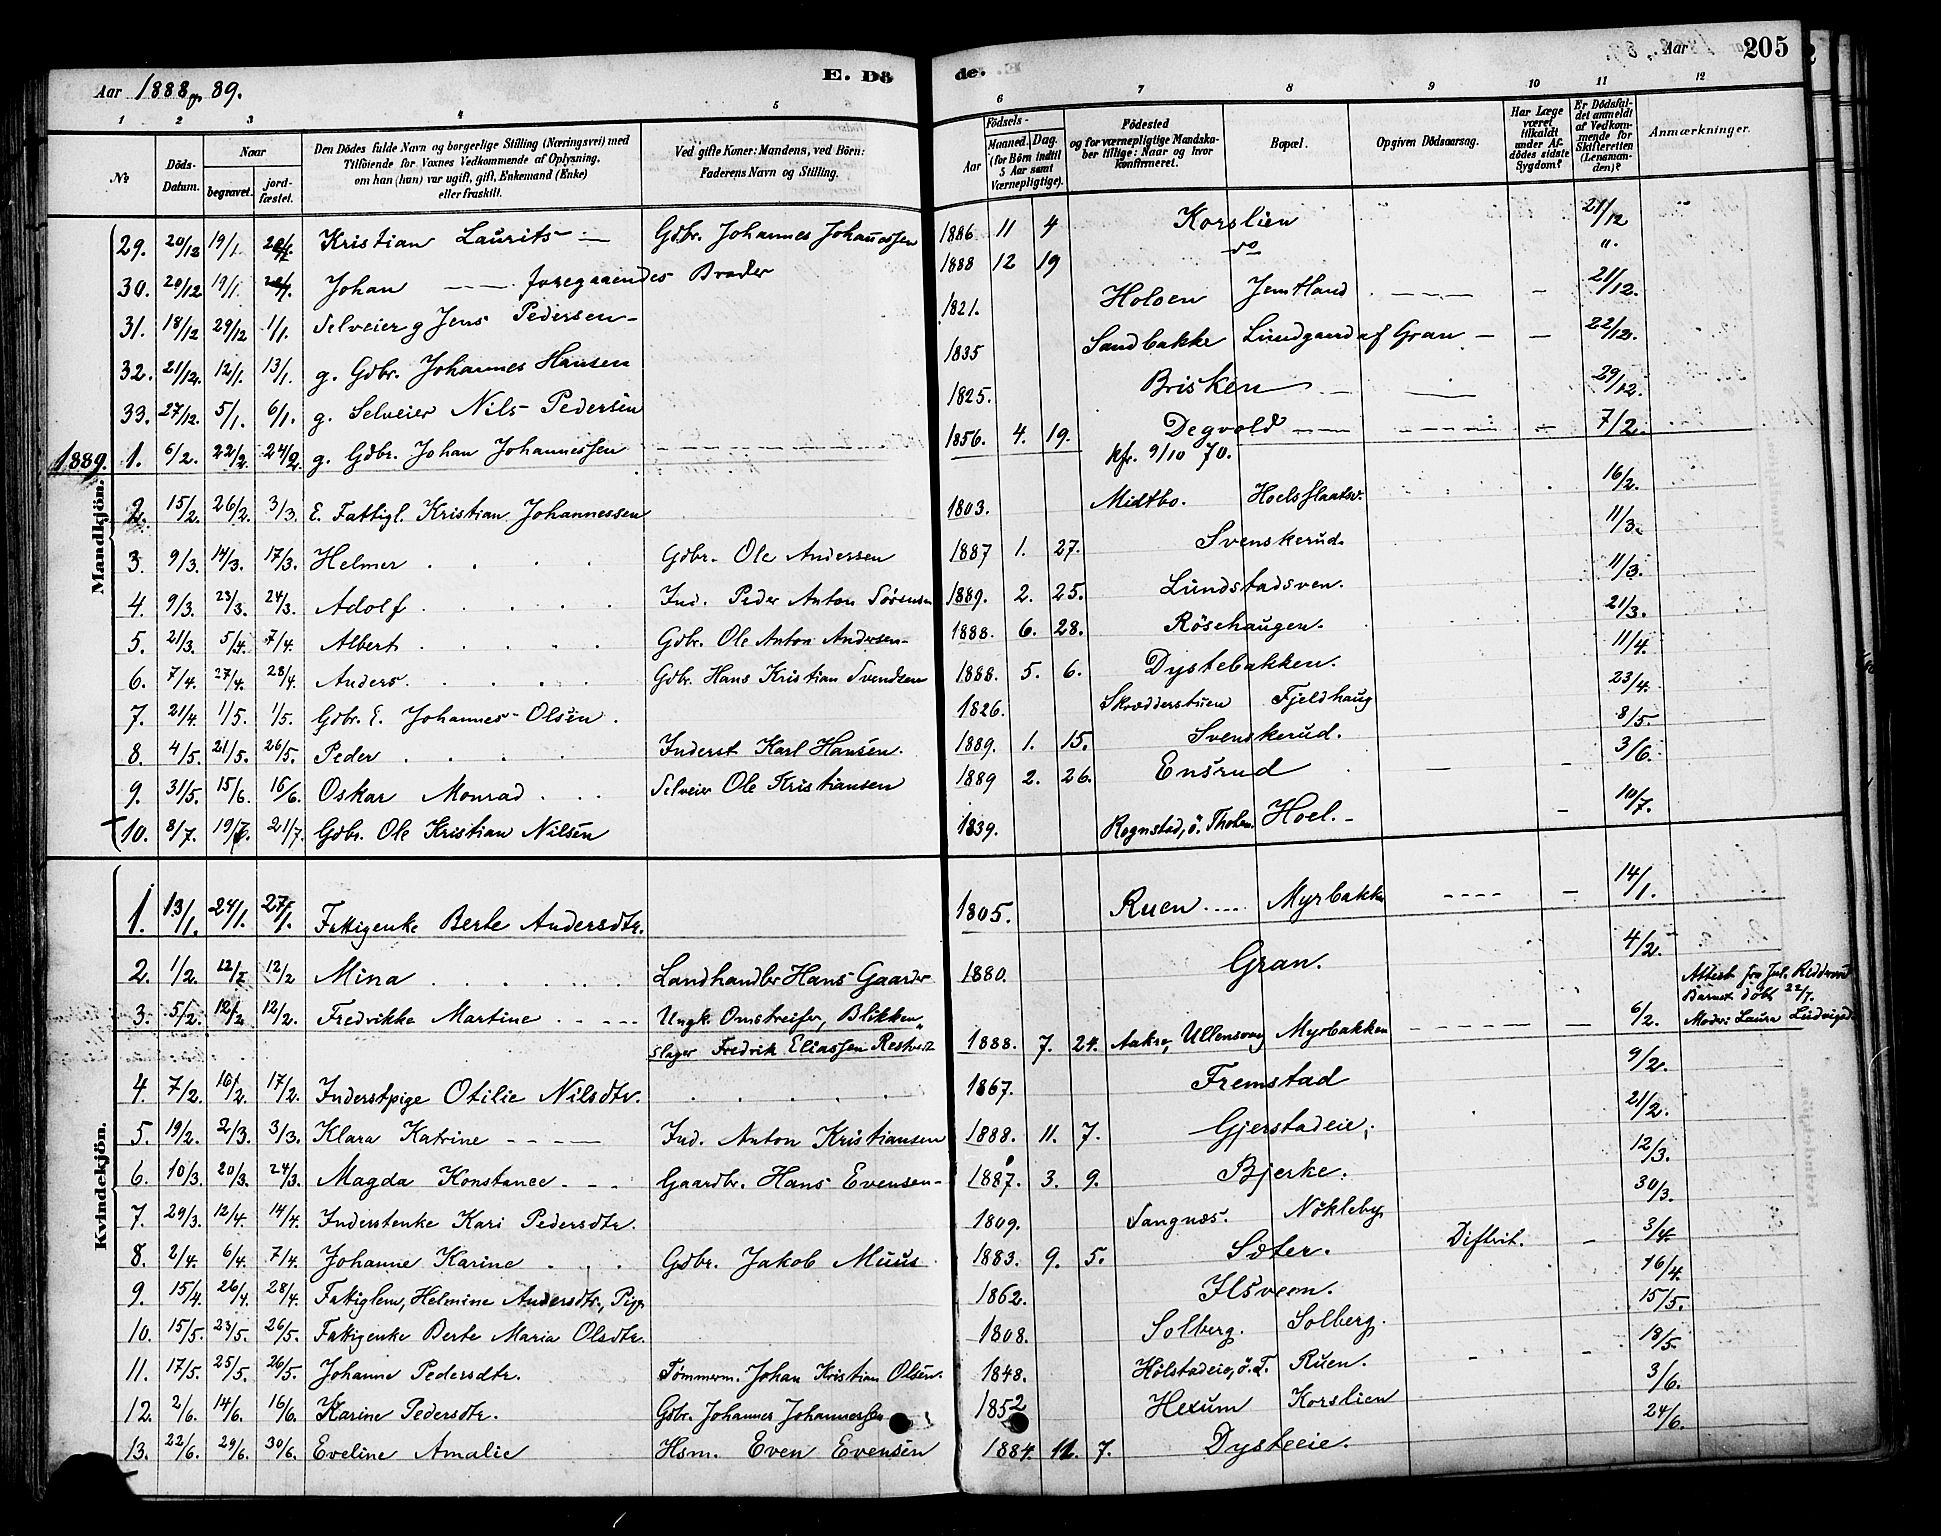 Aar 1888 og 89. E. Dö de. Aar 205
1 2 3 4 5 6 7 8 9 10 11 12
No
Döds-Datum.
Naar begravet. jordfæstet.
Den Dödes fulde Navn og borgerlige Stilling (Næringsvei) med Tilföiende for Voxnes Vedkommende af Oplysning, om han (hun) var ugift, gift, Enkemand (Enke) eller fraskilt.
Ved gifte Koner: Mandens, ved Börn: Faderens Navn og Stilling.
Födsels- Aar Maaned. Dag. (for Börn indtil 5 Aar samt Værnepligtige).
Födested og for værnepligtige Mandskaber tillige: Naar og hvor konfirmeret.
Bopæl.
Opgiven Dödsaarsag.
Har Læge været tilkaldt under Afdödes sidste Sygdom?
Er Dödsfaldet anmeldt af Vedkommende for Skifteretten (Lensmanden)?
Anmærkninger.
Mandkjön.
29. 20/12 19/1. Kristian Laurits — Gdbr. Johannes Johannessen 1886 11 4 Korslien 21/12
30. 20/12 19/1. Johan — foregaaendes Broder 1888 12 19 do "
31. 18/12 29/12 1/1. Selveier g Jens Pedersen 1821. Holoen Jemtland 21/12.
32. 21/12. 12/1. 13/1. g. Gdbr. Johannes Hansen 1835 Sandbakke Lundgaard af Gran 22/12.
33. 27/12. 5/1. 6/1. g. Selveier Nils Pedersen 1825. Brisken 29/12.
1889. 1. 6/2. 22/2. 24/2 g. Gdbr. Johan Johannessen 1856. 4. 19. Degvold 7/2.
kfr. 9/10 70.
2. 15/2. 26/2. 3/3. E. Fattigl. Kristian Johannessen 1803. Midtbo. Hoelsslaatsv. 16/2.
3. 9/3. 14/3. 17/3. Helmer Gdbr. Ole Andersen 1887 1. 27. Svenskerud. 11/3.
4. 9/3. 23/3. 24/3. Adolf Ind. Peder Anton Sörensen 1889. 2. 25. Lundstadsven. 11/3.
5. 21/3. 5/4. 7/4. Albert Gdbr. Ole Anton Andersen 1888. 6. 28. Rösehaugen. 21/3.
6. 7/4. 27/4. 28/4. Anders. Gdbr. Hans Kristian Svendsen 1888. 5. 6. Dystebakken. 11/4.
7. 21/4. 1/5. 1/5. Gdbr. E. Johannes Olsen. 1826. Skrædderstuen Fjeldhaug 23/4.
8. 4/5. 21/5. 26/5. Peder Inderst Karl Hansen. 1889. 1. 15. Svenskerud. 8/5
9. 31/5. 15/6. 16/6. Oskar Monrad Selveier Ole Kristiansen 1889 2. 26. Ensrud 3/6.
10. 8/7. 19/7. 21/7. Gdbr. Ole Kristian Nilsen 1839. Rognstad, ö. Thoten. Hoel. 10/7.
Kvindekjön.
1. 13/1. 24/1. 27/1. Fattigenke Berte Andersdtr. 1805. Ruen Myrbakken 14/1.
2. 1/2. 12/2 12/2 Mina Landhandler Hans Gaarder 1880. Gran. 4/2.
3. 5/2. 12/2 12/2. Fredrikke Martine Ungk. Omstreifer, Blikken- 6/2. Attest fra
slager Fredrik Eliassen 1888. 7. 24. Aakre, Ullensvang Myrbakken Barnet döbt 22/7. Moder: Laura Ludvigsd.
4. 7/2. 16/2. 17/2. Inderstpige Otilie Nilsdtr. 1867. Fremstad 9/2.
5. 19/2. 2/3. 3/3. Klara Katrine Ind. Anton Kristiansen 1888. 11. 7. Gjerstadeie. 21/2.
6. 10/3. 20/3. 24/3. Magda Konstance Gaardbr. Hans Evensen 1887. 3. 9. Bjerke. 12/3.
7. 29/3. 12/4. 14/4. Inderstenke Kari Pedersdtr. 1809. Sangnæs. Nökleby. 30/3.
8. 2/4. 6/4. 7/4. Johanne Karine Gdbr. Jakob Muus 1883. 9. 5. Sæter. Diftrit. 3/4
9. 15/4. 26/4. 28/4. Fattiglem, Helmine Andersdtr., Pige 1862. Ilsveen. 16/4.
10. 15/5. 23/5. 26/5. Fattigenke Berte Maria Olsdtr. 1808. Solberg. Solberg. 15/5.
11. 17/5. 25/5. 26/5. Johanne Pedersdtr. Tömmerm. Johan Kristian Olsen. 1848. Holstadeie, ö. T. Ruen. 18/5.
12. 2/6. 14/6. 16/6. Karine Pedersdtr. Gdbr. Johannes Johannessen 1852 Hexum Korslien 3/6.
13. 22/6. 29/6. 30/6. Eveline Amalie Hsm. Even Evensen 1884. 11. 7. Dysteeie. 24/6.